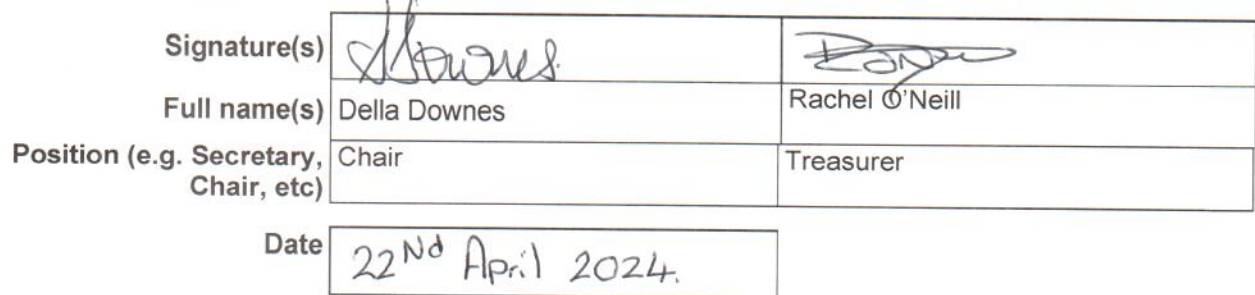 Signature(s) Downes.
Full name(s) Della Downes Rachel O'Neill
Position (e.g. Secretary, Chair Treasurer
Chair, etc)
Date 22Nd April 2024.